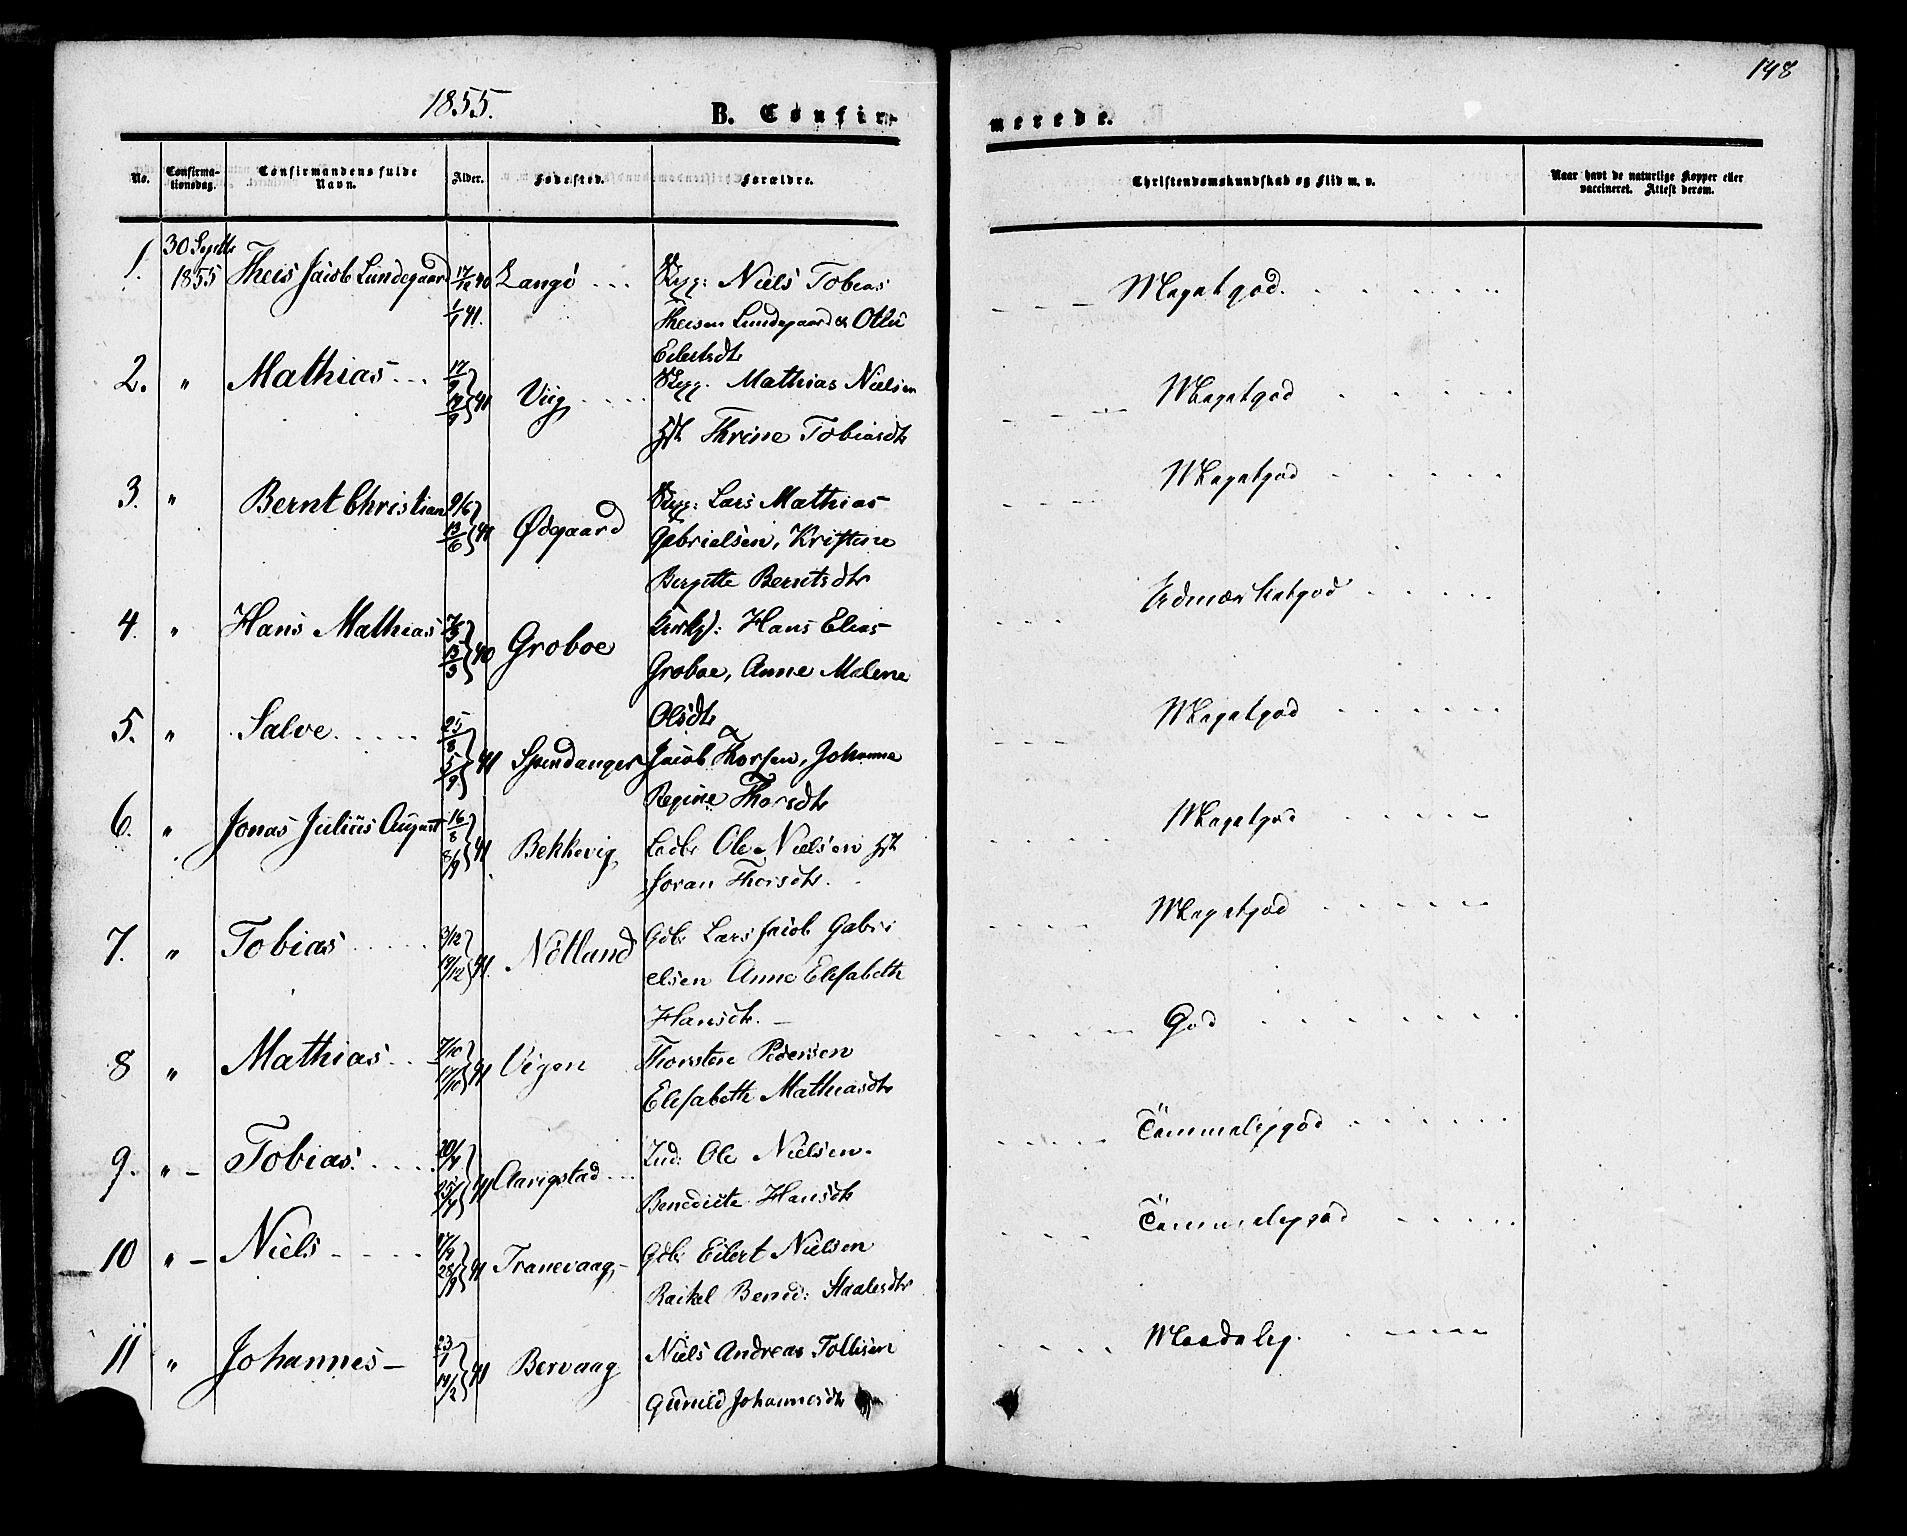 148
1855.
B. Confir-
merede.
No.
Confirma-
tionsdag.
Confirmandens fulde
Navn.
Alder.
Fødested.
Forældre.
Christendomskundskab og Flid m. v.
Naar havt de naturlige Kopper eller
vaccineret. Attest derom.
1. 30 Septbr 1855 Theis Jacob Lundegaard 17/12 40 1/1 41. Langö Niels Tobias
Theisen Lundegaard & Otlie
Eilertsdtr
Megetgod.
2. " Mathias 41 Viig Mathias Nielsen
Thrine Tobiasdtr
Megetgod
3. " Bernt Christian 9/6 13/6 41 Ødgaard Lars Mathias
Gabrielsen, Kristine
Bergitte Berntsdtr
Megetgod
4. " Hans Mathias 40 Groboe Hans Elias
Groboe, Anne Malene
Olsdtr
Udmærketgod
5. " Salve 25/8 5/9 41 Spindanger Jacob Thorsen, Johanne
Regine Thorsdtr
Megetgod
6. " Jonas Julius August 16/8 8/9 41 Bekkevig Ole Nielsen
Joran Thorsdtr.
Megetgod
7. " Tobias 3/12 19/12 41. Nötland Gdbr Lars Jacob Gabri
elsen Anne Elisabeth
Hansdtr.
Megetgod
8 " Mathias 7/10 17/10 41 Vigen Thorsten Pedersen
Elisabeth Mathiasdtr
God
9. " Tobias 41 Aarigstad Ind: Ole Nielsen.
Benedicte Hansdtr
Temmeliggod
10 " Niels 41 Tranevaag Gdbr Eilert Nielsen
Rakel Bened: Staalesdtr
Temmeliggod
11 " Johannes 23/1 14/2 41 Bervaag Niels Andreas Tollisen
Gunild Johannesdtr
Maadelig.